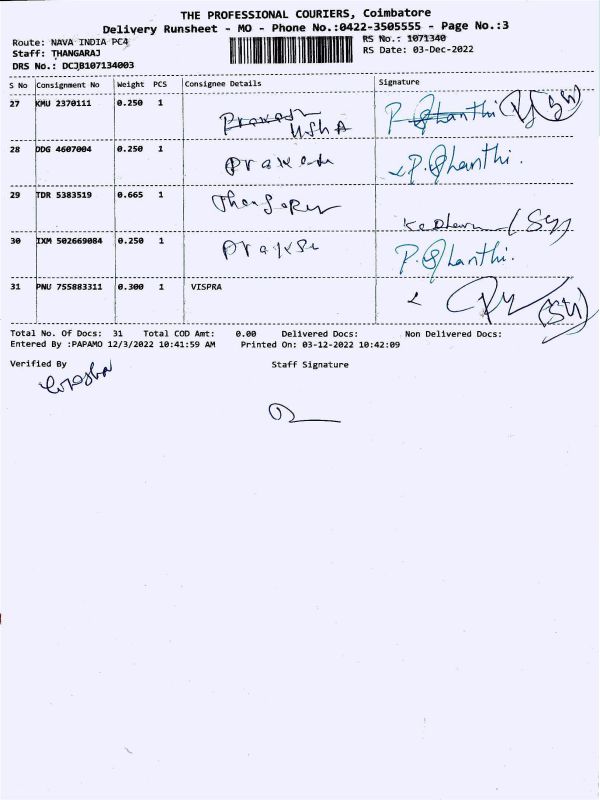 THE PROFESSIONAL COURIERS, Coimbatore
Delivery Runsheet - MO - Phone No.:0422-3505555 - Page No.:3
Route: NAVA INDIA PC4 RS No.: 1071340
Staff: THANGARAJ RS Date: 03-Dec-2022
DRS No.: DCJB107134003
S No Consignment No Weight PCS Consignee Details Signature
27 KMU 2370111 0.250 1 Usha P. Shanthi
28 DDG 4607004 0.250 1 P. Shanthi.
29 TDR 5383519 0.665 1
30 IXM 502669084 0.250 1 P. Shanthi.
31 PNU 755883311 0.300 1 VISPRA
Total No. Of Docs: 31 Total COD Amt: 0.00 Delivered Docs: Non Delivered Docs:
Entered By :PAPAMO 12/3/2022 10:41:59 AM Printed On: 03-12-2022 10:42:09
Verified By Staff Signature